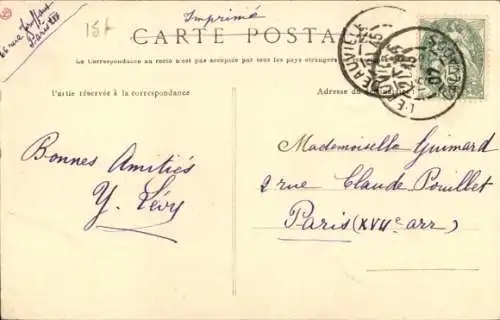 Imprimé
15f
CARTE POSTALE
La Correspondance au recto n'est pas acceptée par tous les pays étrangers
Partie réservée à la correspondance
Adresse du
Bonnes Amitiés
Y. Lévy
Mademoiselle Guimard
2 rue Claude Pouillet
Paris (XVIIe arr)